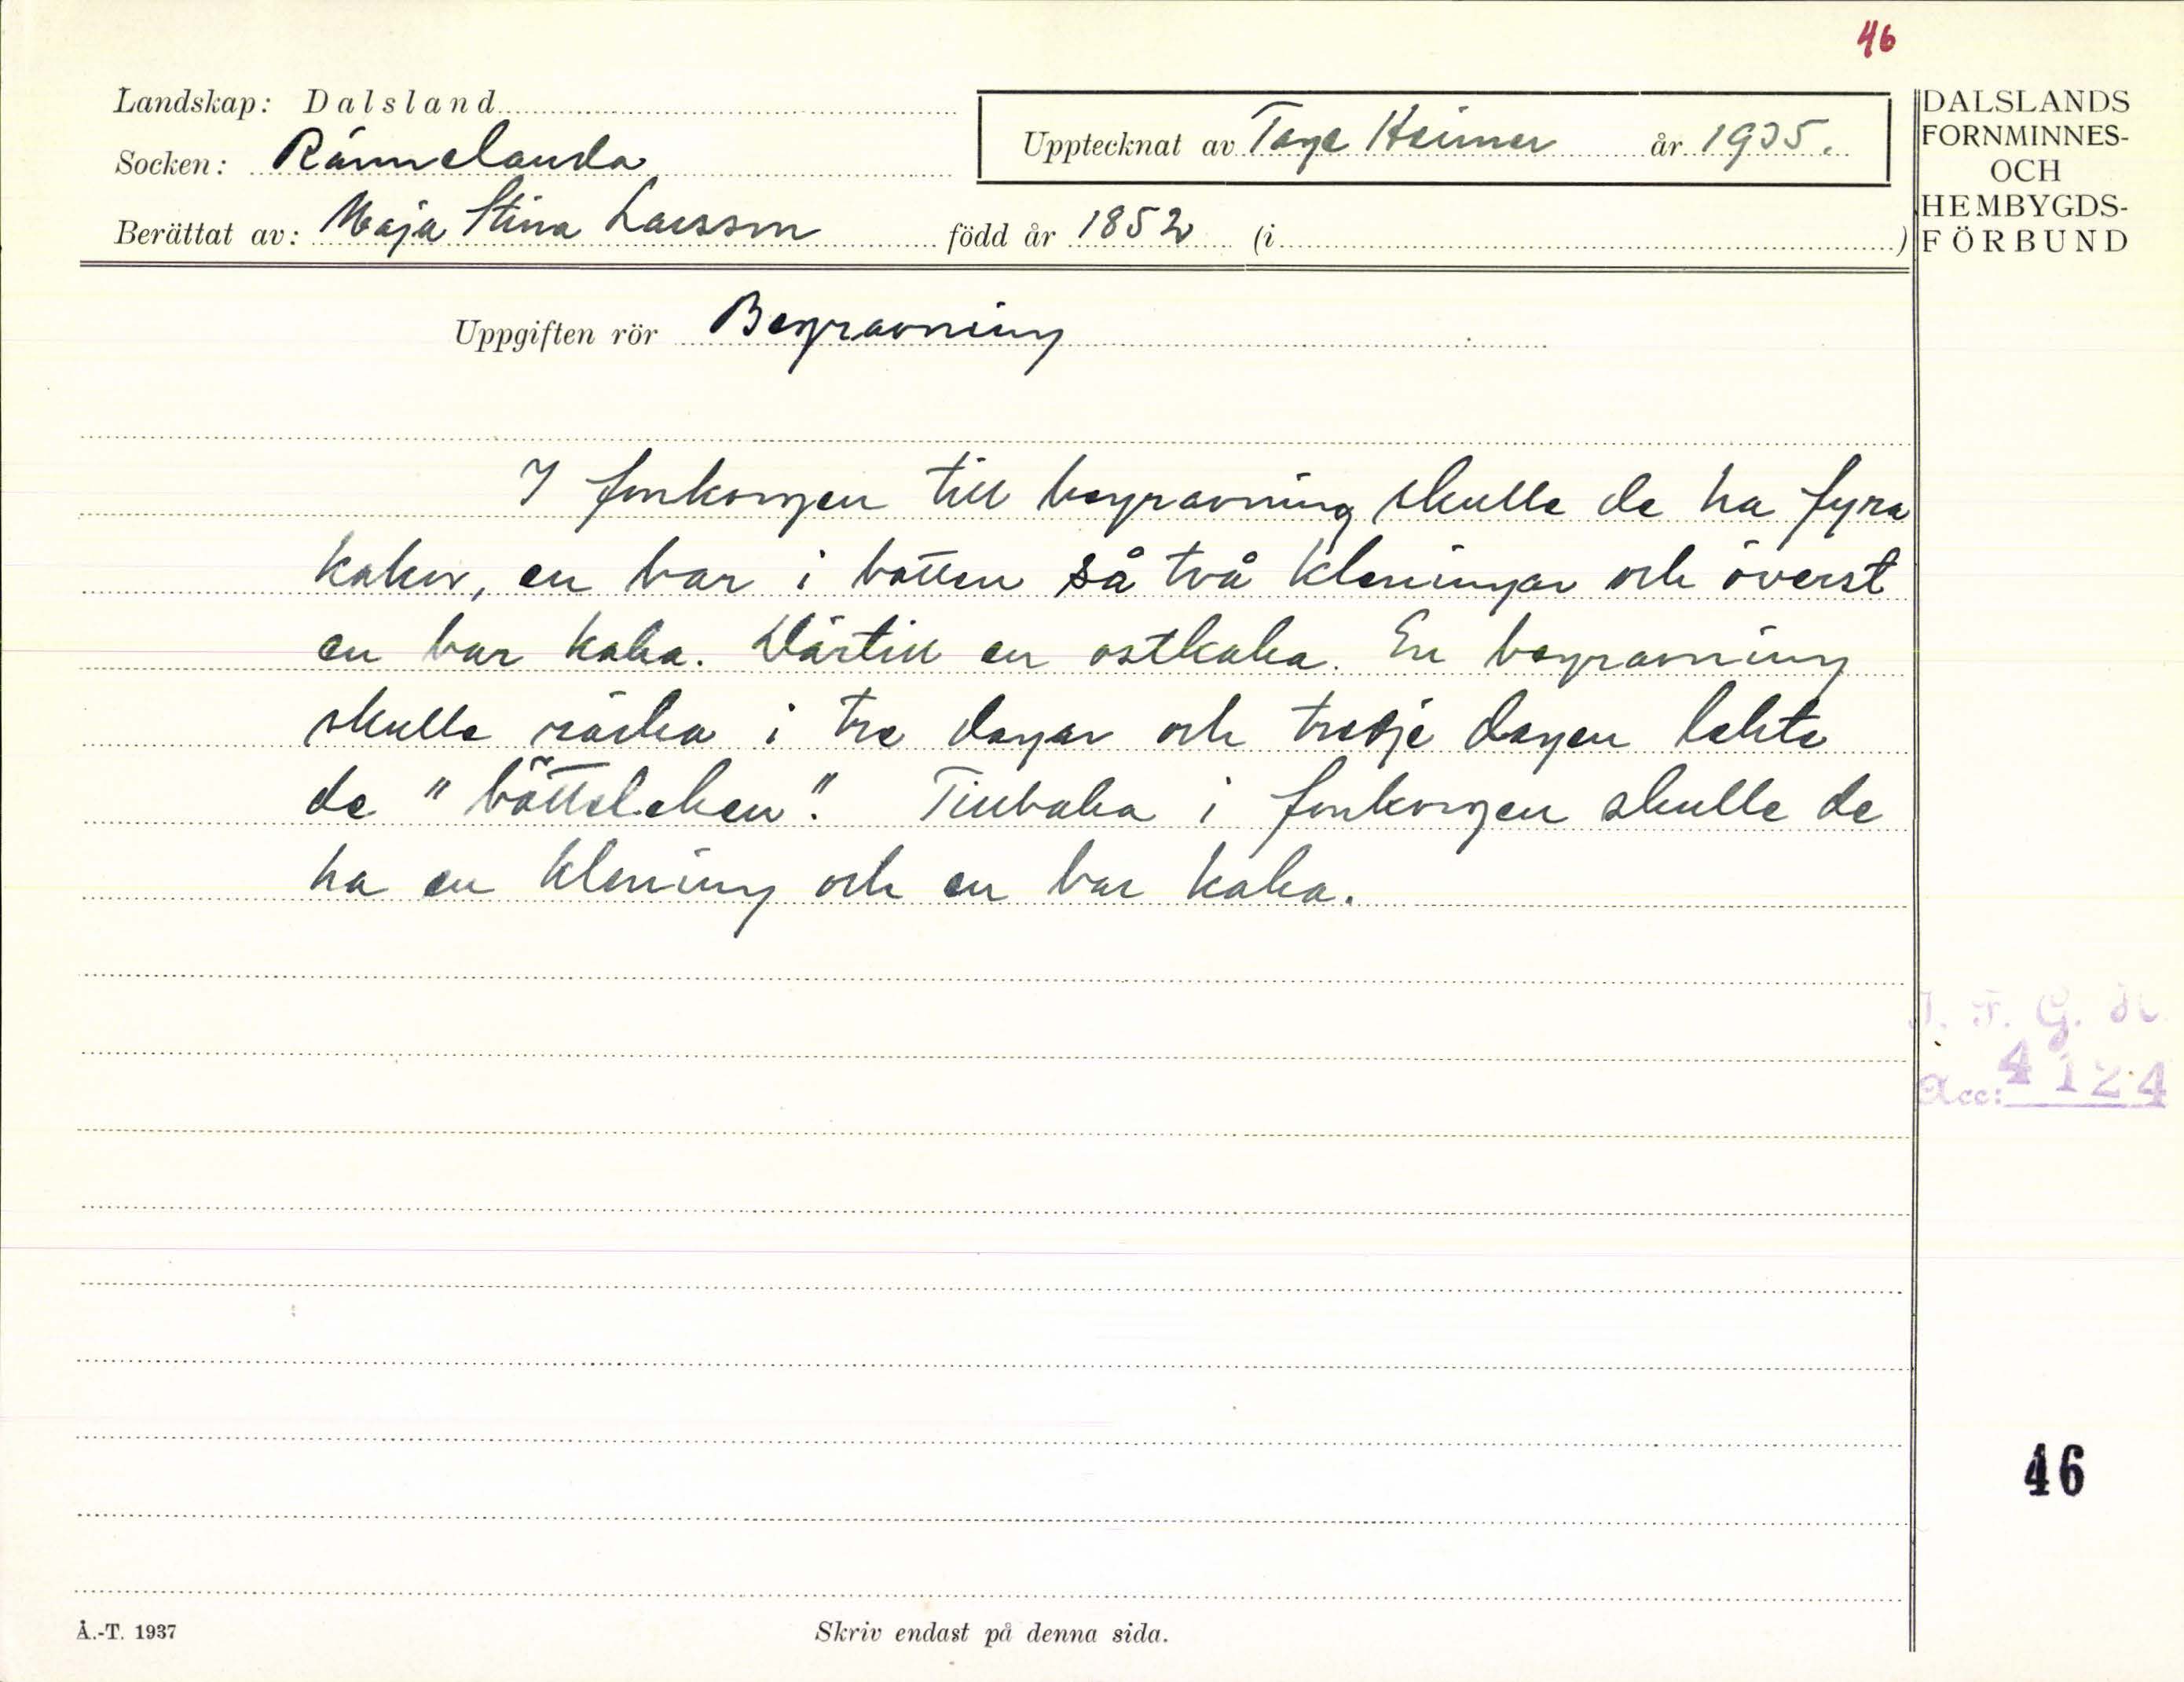 46
Landskap: Dalsland
Socken: Rännelanda
Upptecknat av Tage Heimer år 1935.
Berättat av: Maja Stina Larsson född år 1852 (i )
DALSLANDS
FORNMINNES-
OCH
HEMBYGDS-
FÖRBUND
Uppgiften rör Begravning
I fonkorgen till begravning skulle de ha fyra
kakor, en bar i botten så två kleningar och överst
en bar kaka. Därtill en ostkaka. En begravning
skulle räcka i tre dagar och tredje dagen lekte
de "bötteleken". Tillbaka i fonkorgen skulle de
ha en klening och en bar kaka.
I. F. G. H.
Acc: 4124
46
Å.-T. 1937
Skriv endast på denna sida.